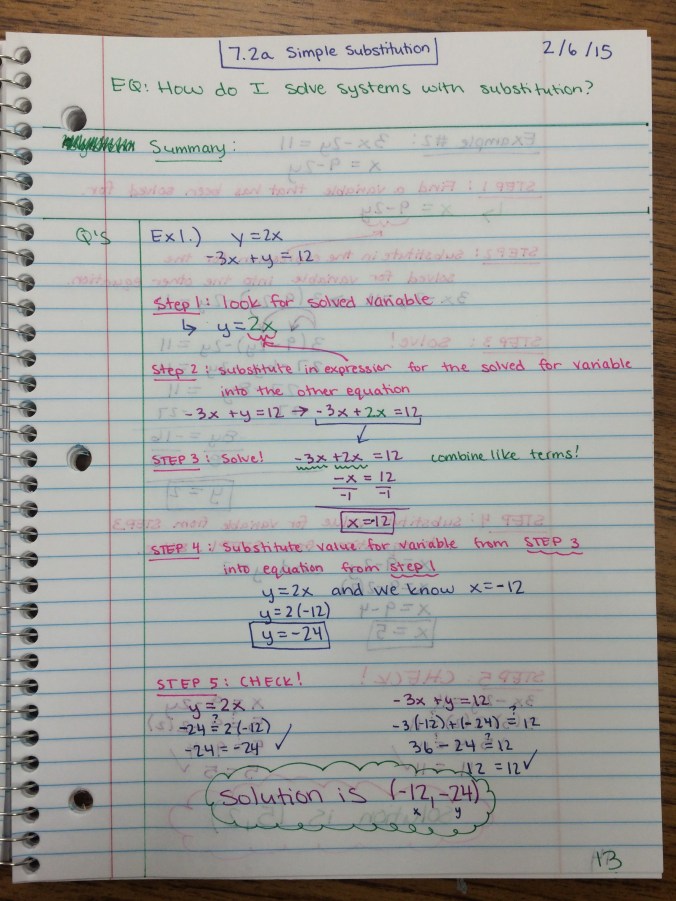 7.2a Simple Substitution
2/6/15
EQ: How do I solve systems with substitution?
Summary:
Q's
Ex1.) y=2x
-3x+y=12
Step 1: look for solved variable
↳ y=2x
Step 2: substitute in expression for the solved for variable
into the other equation
-3x+y=12 → -3x+2x=12
STEP 3: Solve! -3x+2x=12 combine like terms!
-x = 12
-1 -1
x=-12
STEP 4: Substitute value for variable from STEP 3
into equation from step 1
y=2x and we know x=-12
y=2(-12)
y=-24
STEP 5: CHECK!
y=2x
-24 ≟ 2(-12)
-24=-24 ✓
-3x+y=12
-3(-12)+(-24) ≟ 12
36-24 ≟ 12
12=12 ✓
Solution is (-12,-24)
x y
13